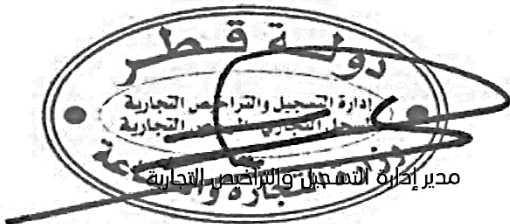 دولة قطر
إدارة التسجيل والتراخيص التجارية
التجارية
مدير إدارة التسجيل والتراخيص التجارية